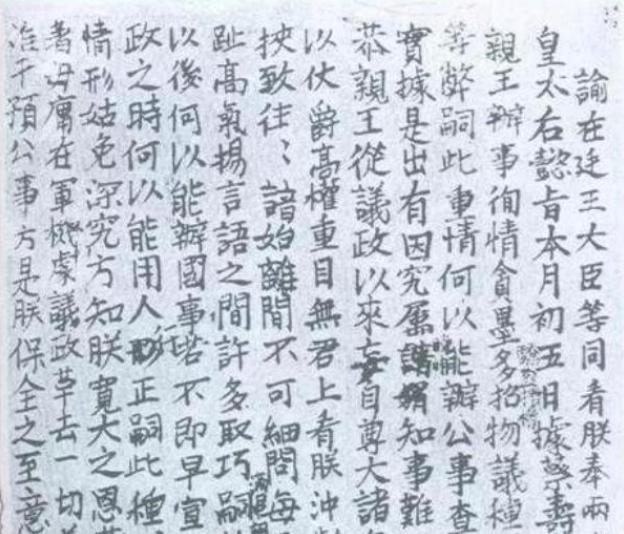 諭在廷王大臣等同看朕奉兩
皇太后懿旨本月初五日據蔡壽
親王辦事徇情貪墨多招物議種
等弊嗣此重情何以能辦公事查
實據是出有因究屬曖昧知事難
恭親王從議政以來妄自尊大諸
以仗爵高權重目無君上看朕沖
挾致往〻諳始離間不可細問每
趾高氣揚言語之間許多取巧嗣
以後何以能辦國事若不即早宣
政之時何以能用人行正嗣此種
情形姑免深究方知朕寬大之恩
着毋庸在軍機處議政革去一切
治干預公事方是朕保全之至意